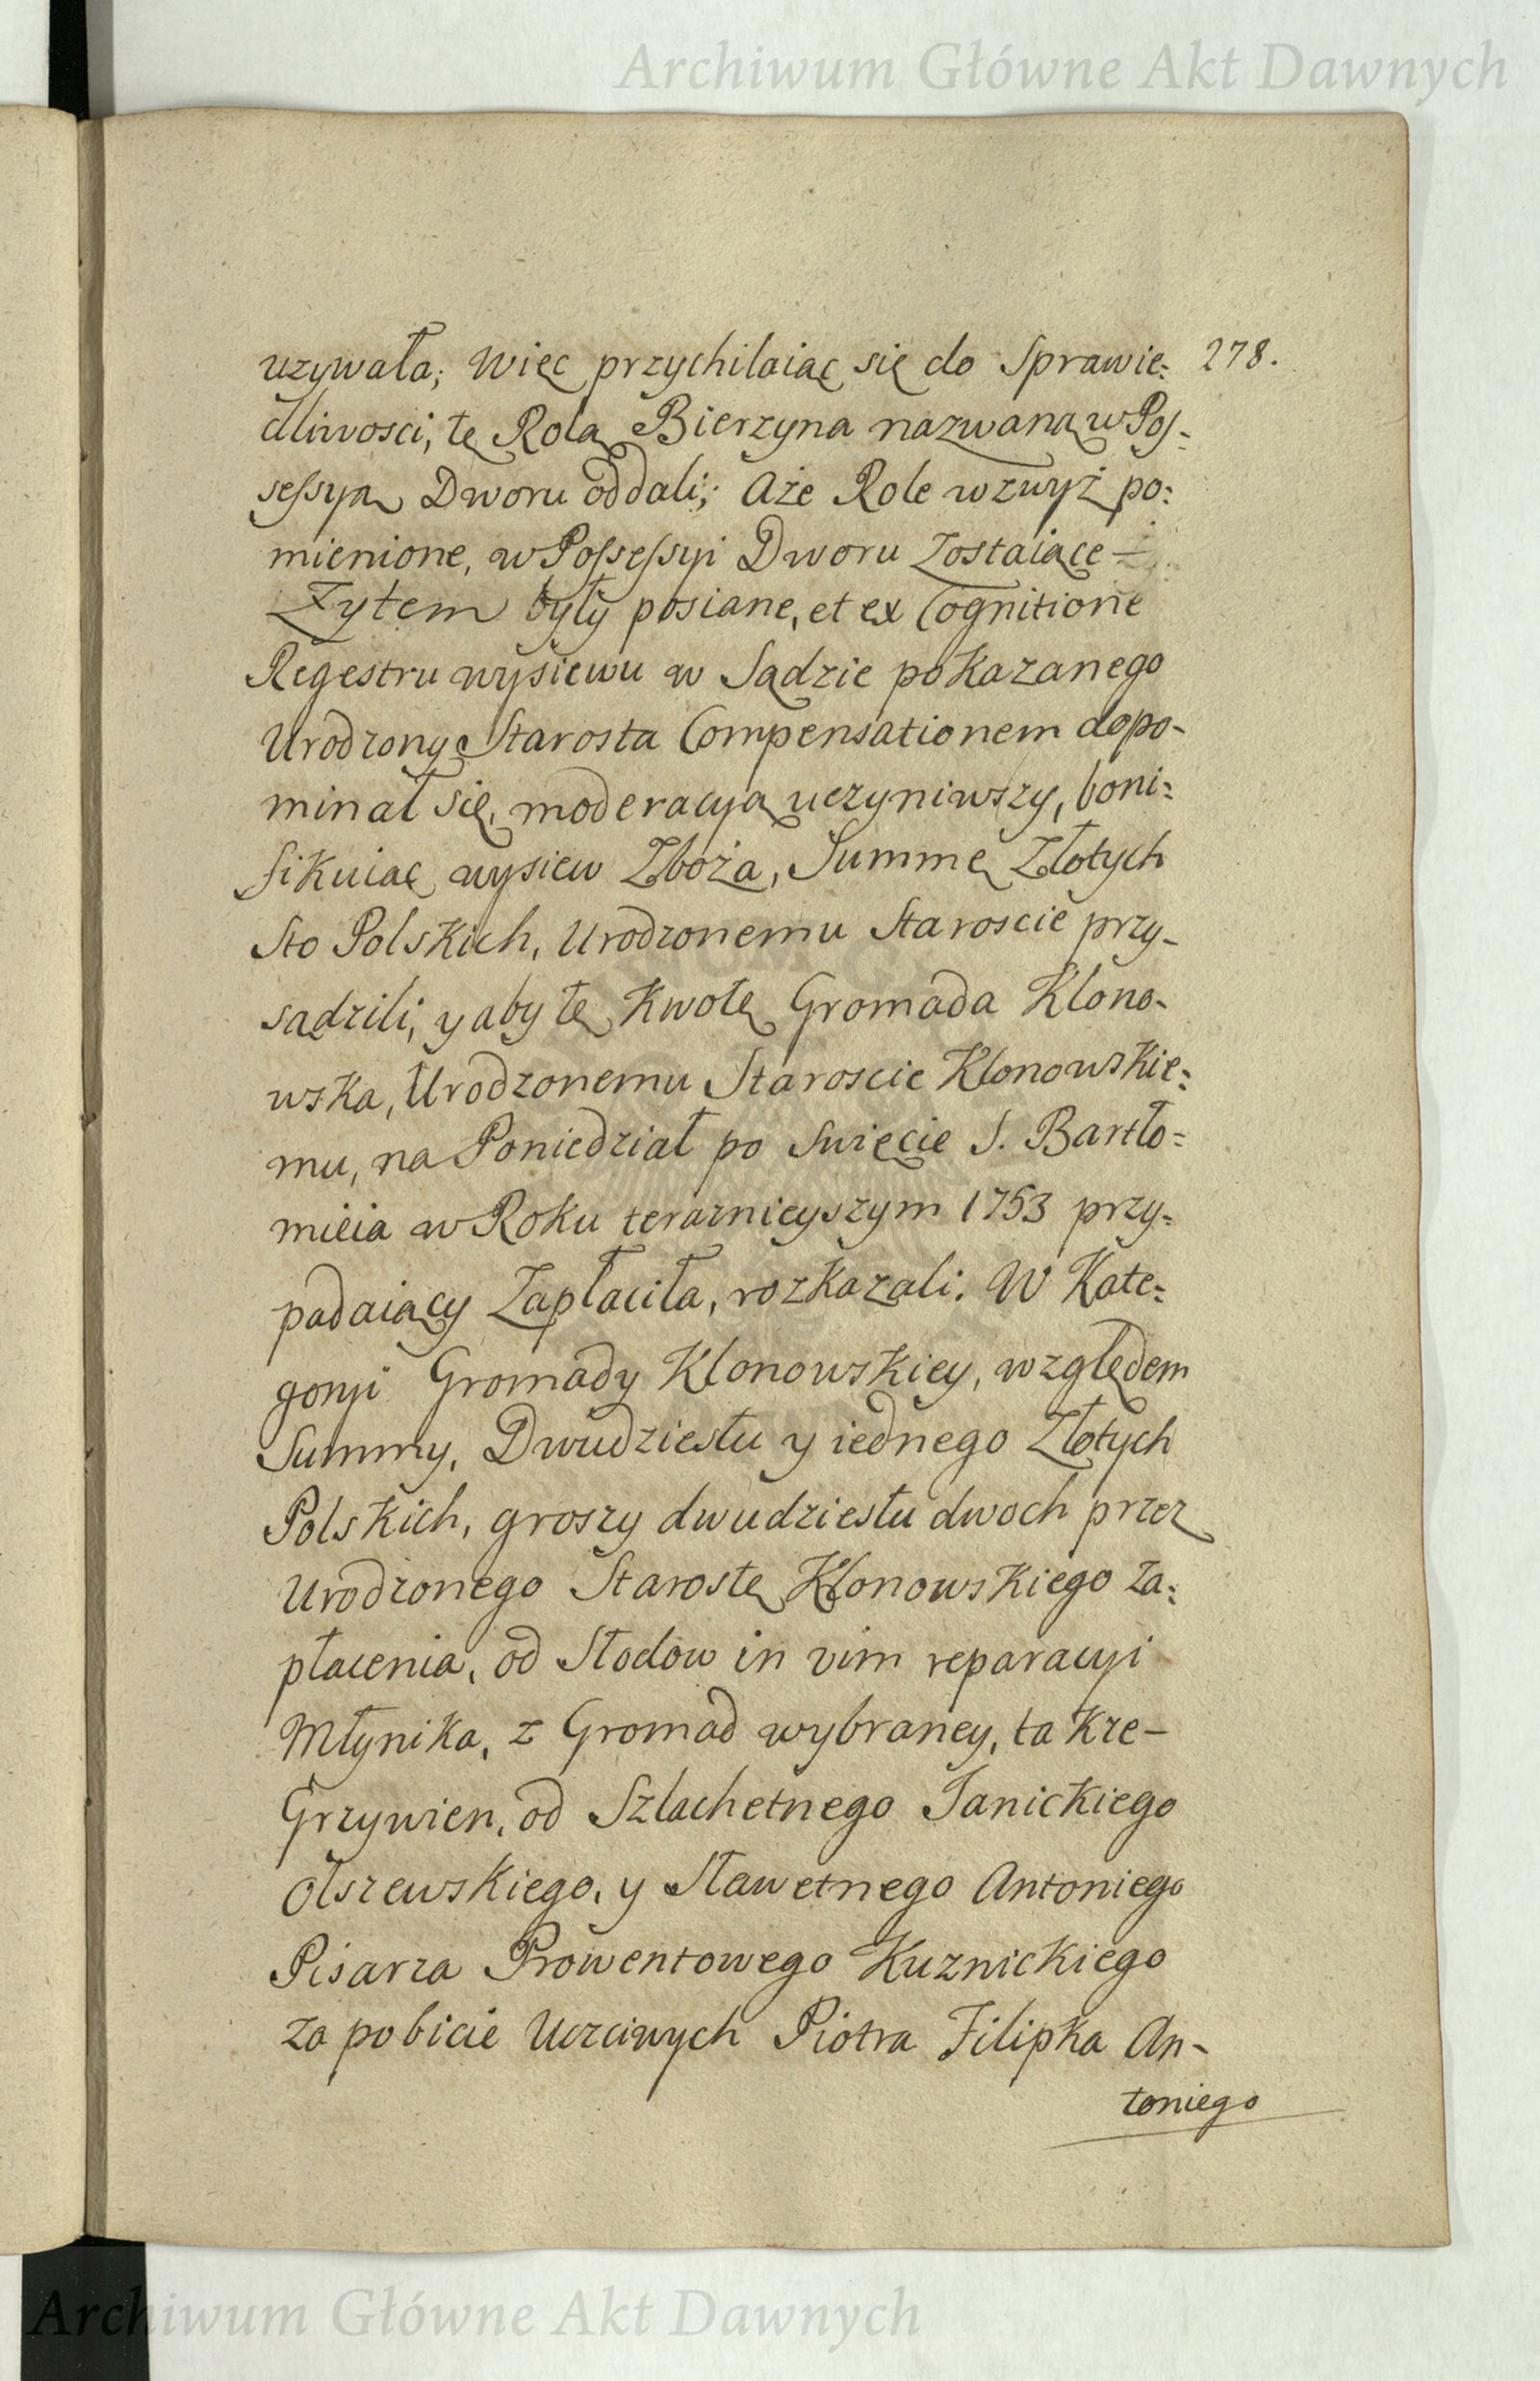 Archiwum Główne Akt Dawnych
278.
uzywała; Więc przychilaiąc się do Sprawie:
dliwosci, tę Rolą Bierzyna nazwaną w Pos-
sessyą Dworu oddali; Aże Role wzwyż po:
mienione, w Possessyi Dworu Zostaiące
Zytem były posiane, et ex Cognitione
Regestru wysiewu w Sądzie pokazanego
Urodzony Starosta Compensationem dopo-
minał się, moderacyą uczyniwszy, boni:
fikuiąc wysiew Zboża, Summę Złotych
Sto Polskich, Urodzonemu Staroscie przy-
sądzili, y aby tę Kwotę Gromada Klono-
wska, Urodzonemu Staroscie Klonowskie:
mu, na Poniedział po Swięcie S. Bartło=
mieia w Roku teraznieyszym 1753 przy:
padaiący Zapłaciła, rozkazali. W Kate:
goryi Gromady Klonowskiey, względem
Summy, Dwudziestu y iednego Złotych
Polskich, groszy dwudziestu dwoch przez
Urodzonego Starostę Klonowskiego za:
płacenia, od Słodow in vim reparacyi
Młynika, z Gromad wybraney, takze
Grzywien, od Szlachetnego Janickiego
Olszewskiego, y Sławetnego Antoniego
Pisarza Prowentowego Kuznickiego
za pobicie Uczciwych Piotra Filipka An-
toniego
Archiwum Główne Akt Dawnych